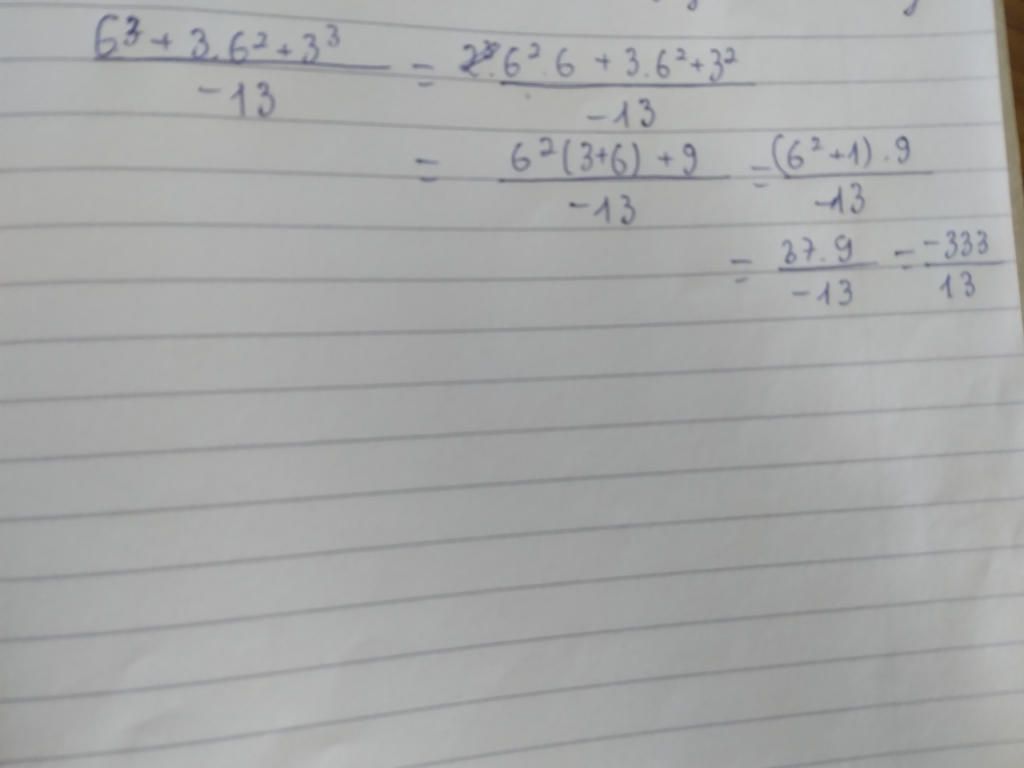 6³ + 3.6² + 3³ / -13 = 6².6 + 3.6² + 3² / -13
= 6²(3+6) + 9 / -13 = (6²+1).9 / -13
= 37.9 / -13 = -333 / 13